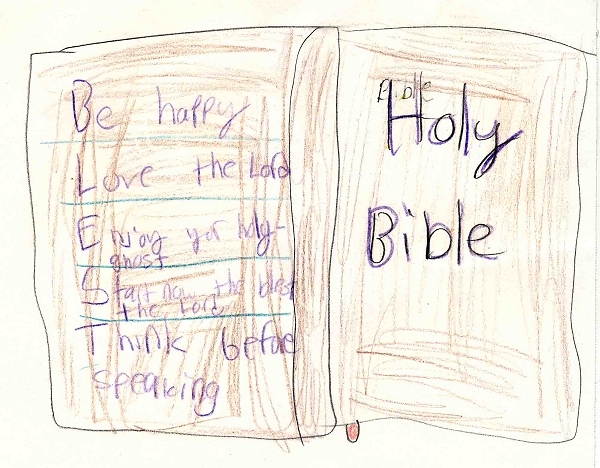 Be happy
Love the Lord
Enjoy your holy-
ghost
Start now the blest
the Lord
Think before
speaking
Bible
Holy
Bible